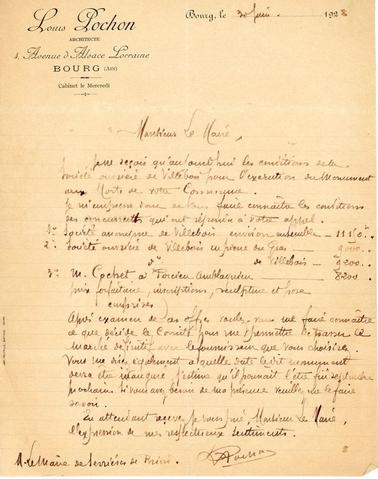 Louis Pochon
ARCHITECTE
4, Avenue d'Alsace Lorraine
BOURG (Ain)
Cabinet le Mercredi
Bourg, le 30 Juin 1928
Monsieur Le Maire,
Je ne reçois qu'aujourd'hui les conditions de la
Société ouvrière de Villebois pour l'exécution du Monument
aux Morts de votre Commune.
Je m'empresse donc de vous faire connaître les conditions
des concurrents qui ont répondu à votre appel.
1° Société anonyme de Villebois environ
2° Société ouvrière de Villebois en pierre de 9000.
d° de Villebois 9200
3° M. Cochet à 8200
prix forfaitaire, inscriptions, sculpture et pose
comprises
Après examen de ces offres veuillez me faire connaître
ce que décide le Comité pour me permettre de traiter le
marché définitif avec le fournisseur que vous choisirez
Vous me direz également à quelle date le dit monument
devra être inauguré. J'estime qu'il pourrait l'être fin septembre
prochain. Si vous avez besoin de ma présence veuillez me le faire
savoir.
En attendant agréez je vous prie, Monsieur Le Maire,
l'expression de mes respectueux sentiments.
LPochon
M. le Maire de Serrières de Briord.